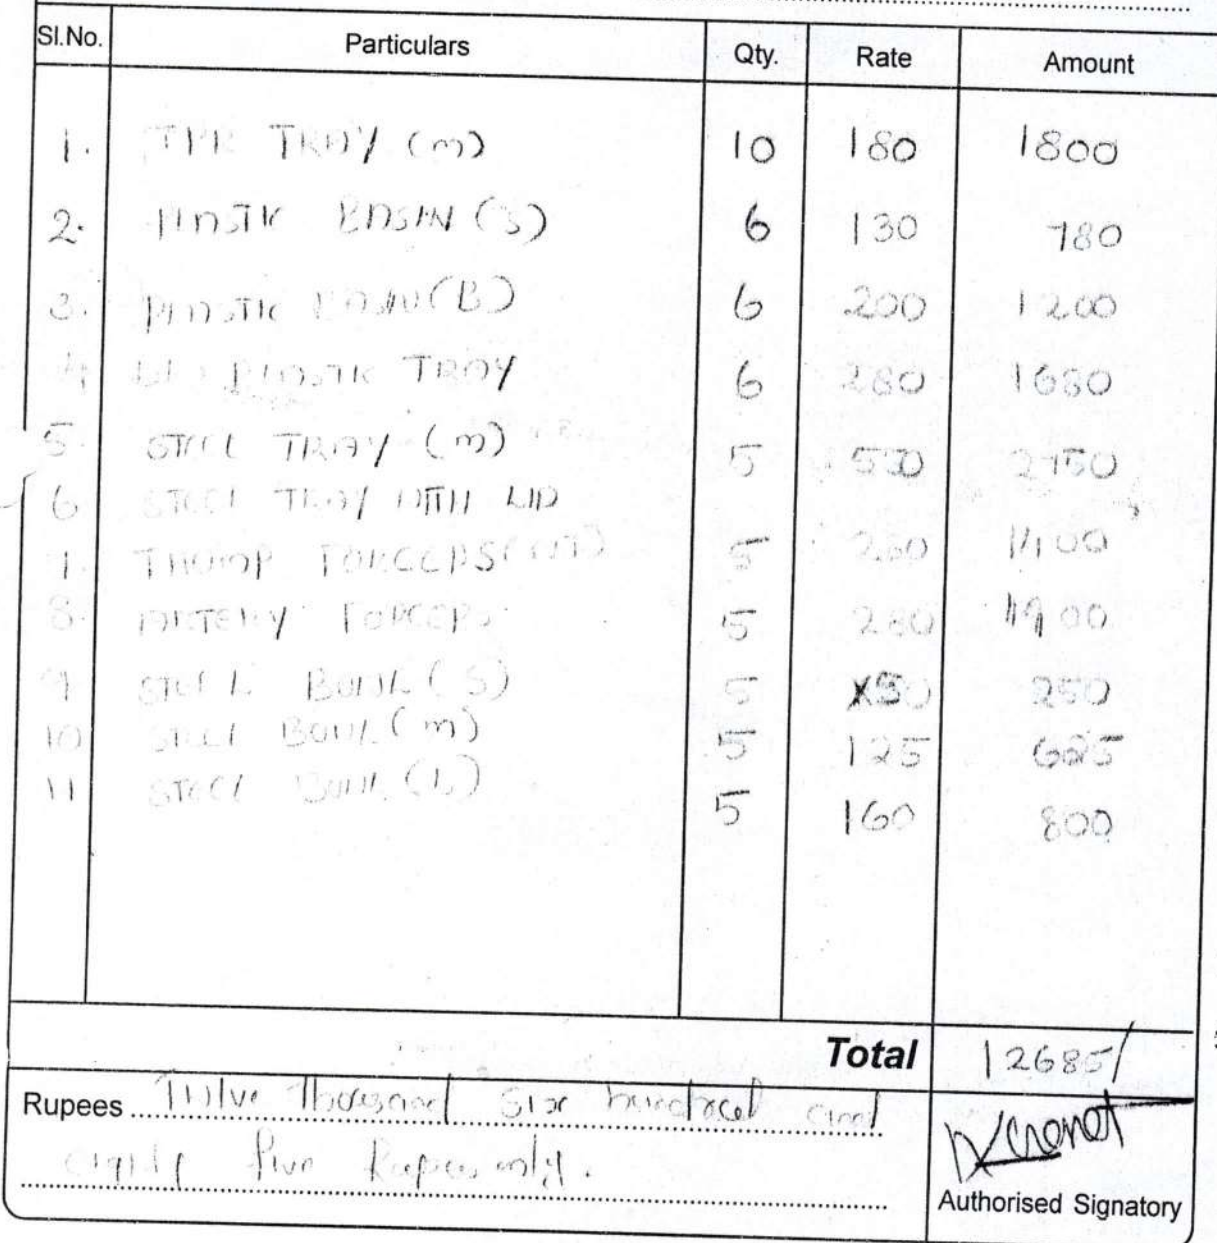 Sl.No. Particulars Qty. Rate Amount
1. TPR TRAY (m) 10 180 1800
2. PLASTIC BASIN (S) 6 130 780
3. PLASTIC BASIN (B) 6 200 1200
4 PLASTIC TRAY 6 280 1680
5. STEEL TRAY (m) 5 550 2750
6 STEEL TRAY WITH LID
7. THUMP FORCEPS 5 280 1400
8. ARTERY FORCEPS 5 280 1400
9 STEEL BOWL (S) 5 250
10 STEEL BOWL (m) 5 125 625
11 STEEL BOWL 5 160 800
Total 12685/
Rupees Twelve Thousand Six hundred and
eighty five Rupees only.
Authorised Signatory